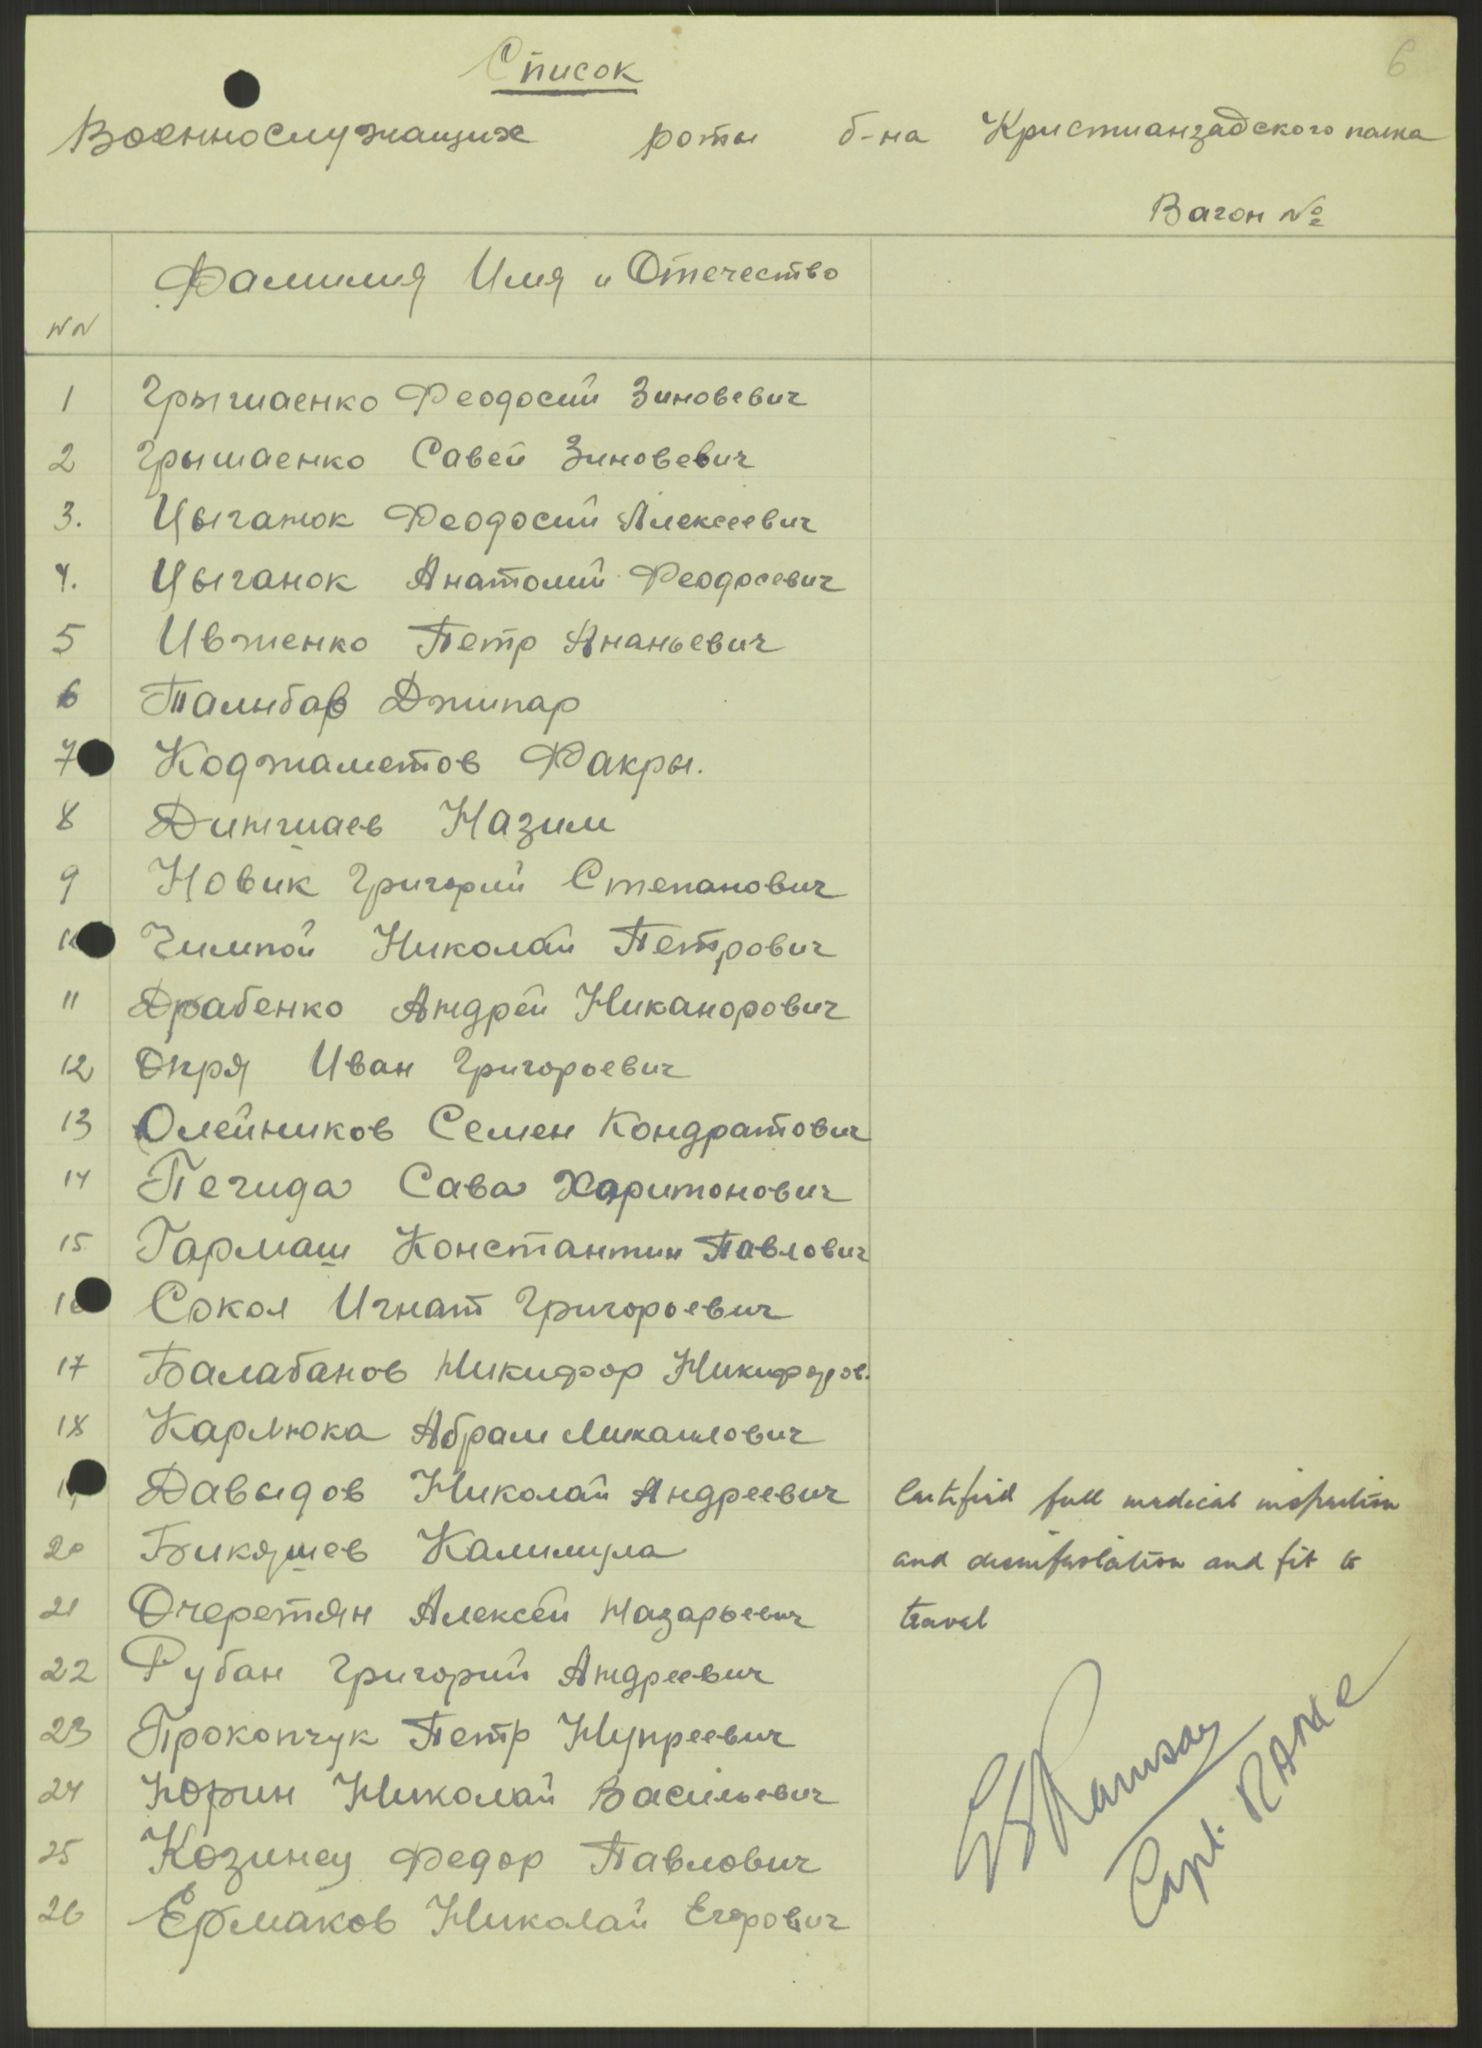 6
Список
Военнослужащих роты б-на Кристианзадского полка
Вагон №
NN Фамилия Имя и Отечество
1 Грышаенко Феодосий Зиновевич
2 Грышаенко Савей Зиновевич
3. Цыганок Феодосий Алексеевич
4. Цыганок Анатолий Феодосевич
5 Ивженко Петр Ананьевич
6 Талибов Джипар
7 Коджаметов Факры.
8 Диншаев Назим
9 Новик Григорий Степанович
Чимпой Николай Петрович
11 Драбенко Андрей Никанорович
12 Опря Иван Григороевич
13 Олейников Семен Кондратович
14 Печида Сава Харитонович
15 Гармаш Константин Павлович
16 Сокол Игнат Григороевич
17 Балабанов Никифор Никифоров.
18 Карлюка Абрам Михаилович
Давыдов Николай Андреевич
20 Бикяшев Калимула
21 Очеретян Алексей Назарьевич
22 Рубан Григорий Андреевич
23 Прокопчук Петр Нупреевич
24 Юрин Николай Васильевич
25 Козинец Федор Павлович
26 Ермаков Николай Егорович
Certified full medical inspection
and disinfestation and fit to
travel
Ramsay
Capt. RAMC